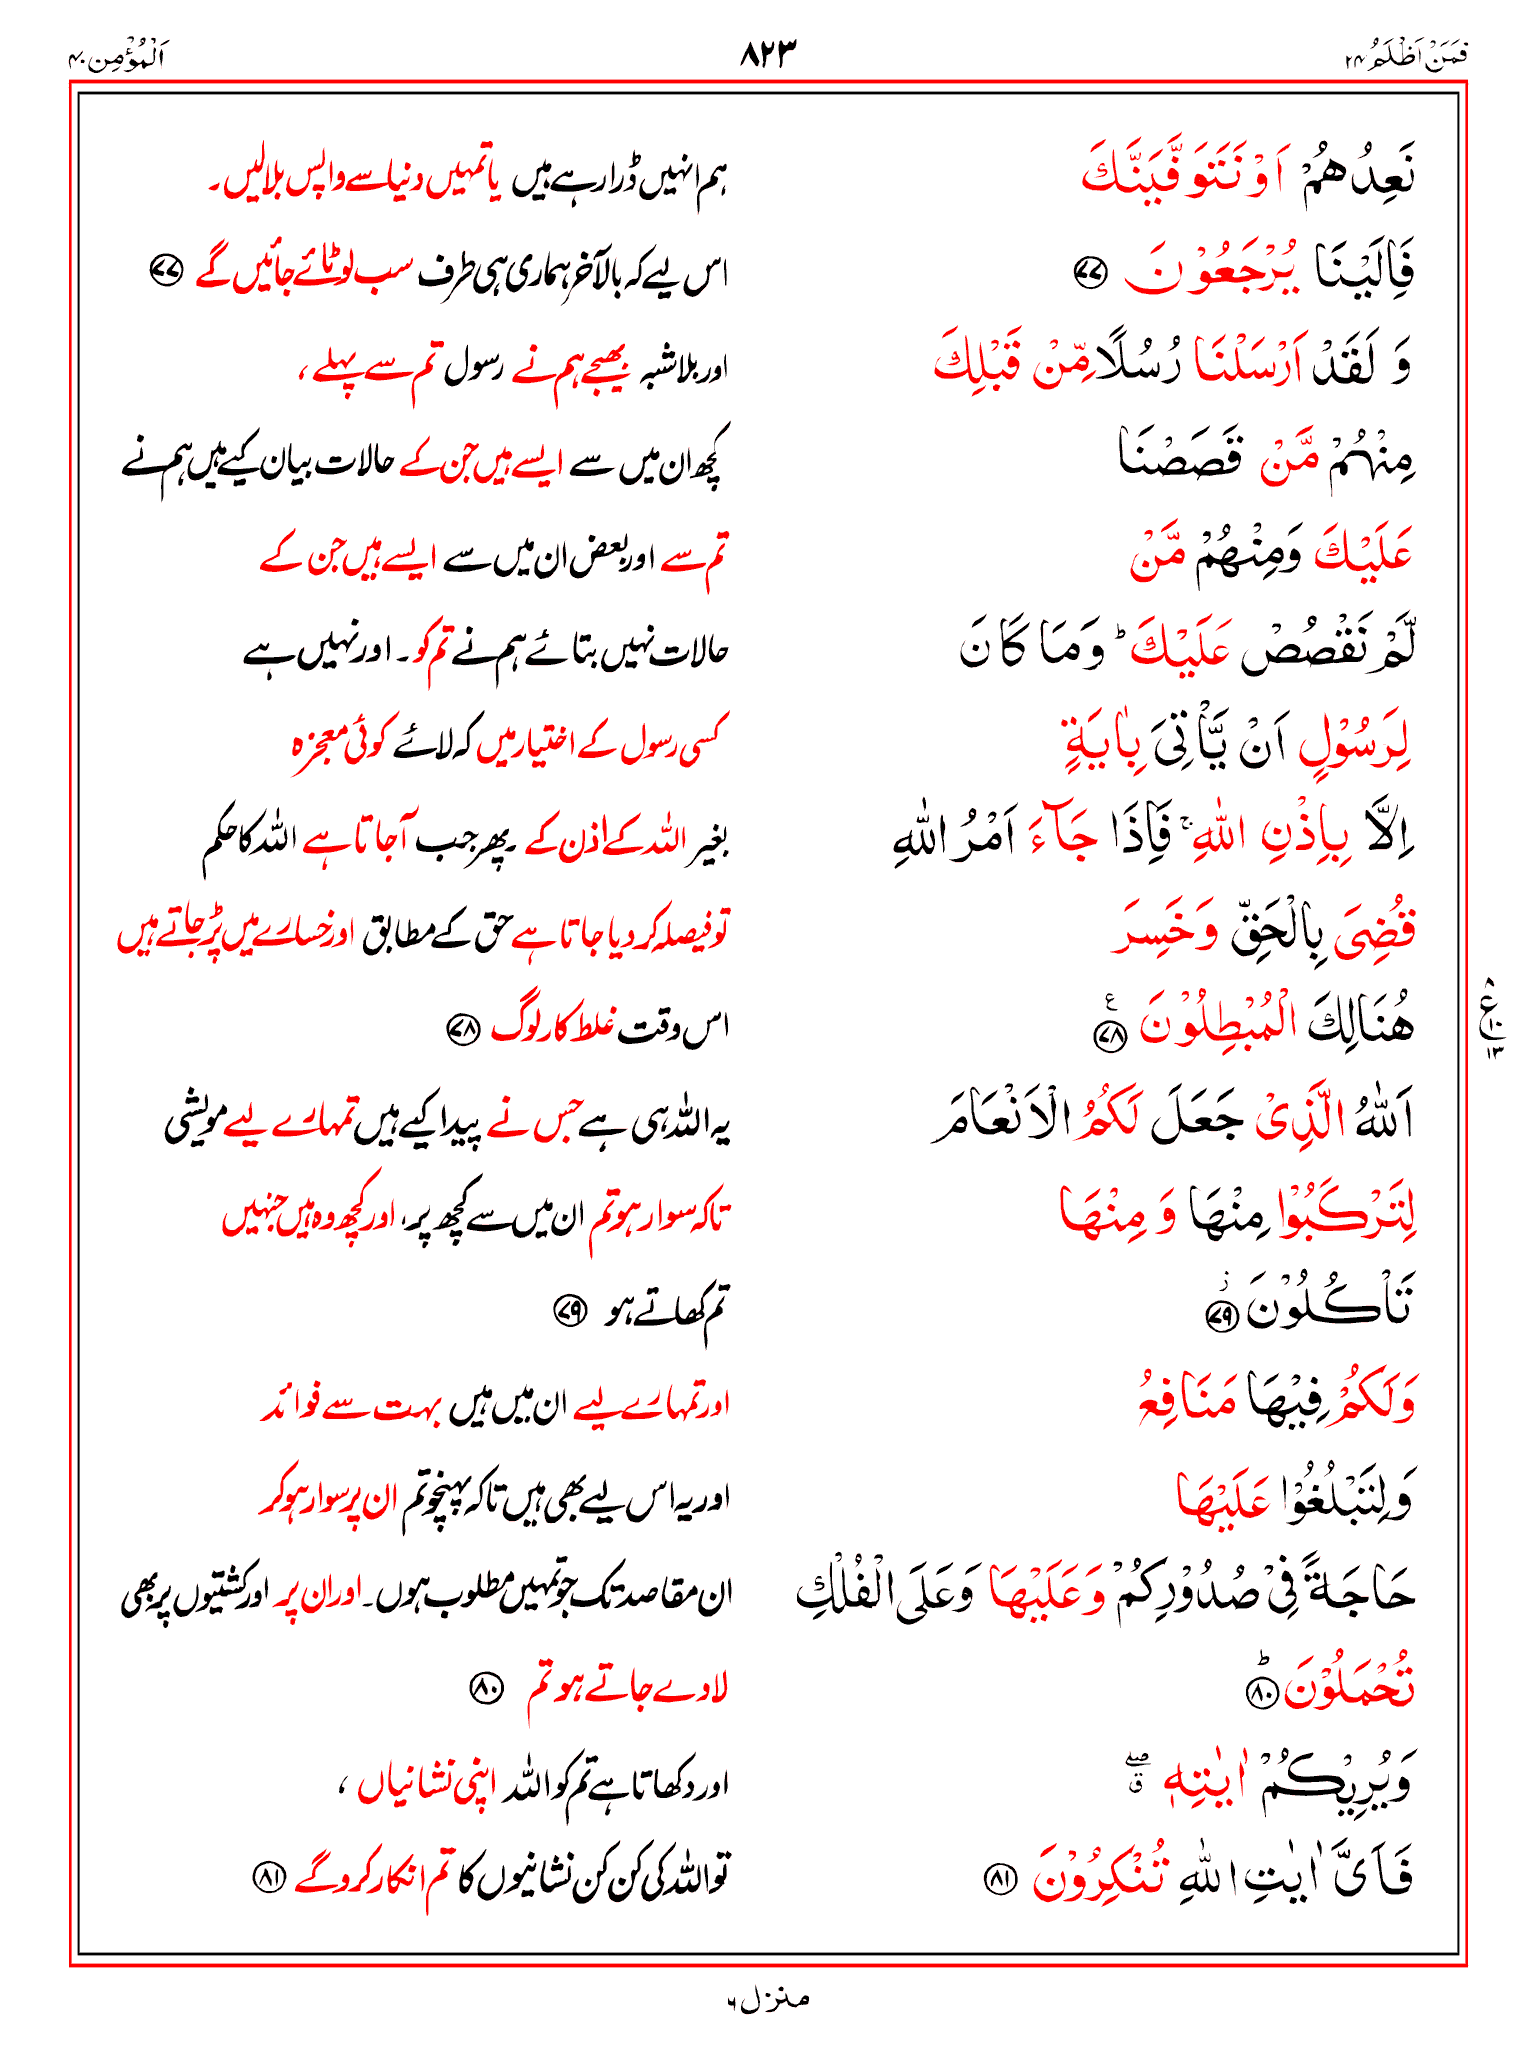 فَمَنْ اَظْلَمُ ۲۴ ۸۲۳ اَلْمُؤْمِن ۴۰
نَعِدُهُمْ اَوْ نَتَوَفَّيَنَّكَ ہم انہیں ڈرا رہے ہیں یا تمہیں دنیا سے واپس بلا لیں۔
فَاِلَيْنَا يُرْجَعُوْنَ ﴿۷۷﴾ اس لیے کہ بالآخر ہماری ہی طرف سب لوٹائے جائیں گے ﴿۷۷﴾
وَ لَقَدْ اَرْسَلْنَا رُسُلًا مِّنْ قَبْلِكَ اور بلاشبہ بھیجے ہم نے رسول تم سے پہلے ،
مِنْهُمْ مَّنْ قَصَصْنَا کچھ ان میں سے ایسے ہیں جن کے حالات بیان کیے ہیں ہم نے
عَلَيْكَ وَمِنْهُمْ مَّنْ تم سے اور بعض ان میں سے ایسے ہیں جن کے
لَّمْ نَقْصُصْ عَلَيْكَ ؕ وَمَا كَانَ حالات نہیں بتائے ہم نے تم کو۔ اور نہیں ہے
لِرَسُوْلٍ اَنْ يَّاْتِىَ بِاٰيَةٍ کسی رسول کے اختیار میں کہ لائے کوئی معجزہ
اِلَّا بِاِذْنِ اللّٰهِ ۚ فَاِذَا جَآءَ اَمْرُ اللّٰهِ بغیر اللہ کے اذن کے۔ پھر جب آ جاتا ہے اللہ کا حکم
قُضِىَ بِالْحَقِّ وَخَسِرَ تو فیصلہ کر دیا جاتا ہے حق کے مطابق اور خسارے میں پڑ جاتے ہیں
هُنَالِكَ الْمُبْطِلُوْنَ ﴿۷۸﴾ ع اس وقت غلط کار لوگ ﴿۷۸﴾
۸ ع ۱۰ ۱۳
اَللّٰهُ الَّذِىْ جَعَلَ لَكُمُ الْاَنْعَامَ یہ اللہ ہی ہے جس نے پیدا کیے ہیں تمہارے لیے مویشی
لِتَرْكَبُوْا مِنْهَا وَ مِنْهَا تاکہ سوار ہو تم ان میں سے کچھ پر، اور کچھ وہ ہیں جنہیں
تَاْكُلُوْنَ ﴿۷۹﴾ ز تم کھاتے ہو ﴿۷۹﴾
وَلَكُمْ فِيْهَا مَنَافِعُ اور تمہارے لیے ان میں ہیں بہت سے فوائد
وَلِتَبْلُغُوْا عَلَيْهَا اور یہ اس لیے بھی ہیں تاکہ پہنچو تم ان پر سوار ہو کر
حَاجَةً فِىْ صُدُوْرِكُمْ وَعَلَيْهَا وَعَلَى الْفُلْكِ ان مقاصد تک جو تمہیں مطلوب ہوں۔ اور ان پر اور کشتیوں پر بھی
تُحْمَلُوْنَ ﴿۸۰﴾ ؕ لادے جاتے ہو تم ﴿۸۰﴾
وَيُرِيْكُمْ اٰيٰتِهٖ ۖ ق اور دکھاتا ہے تم کو اللہ اپنی نشانیاں ،
فَاَىَّ اٰيٰتِ اللّٰهِ تُنْكِرُوْنَ ﴿۸۱﴾ تو اللہ کی کن کن نشانیوں کا تم انکار کرو گے ﴿۸۱﴾
منزل ۶